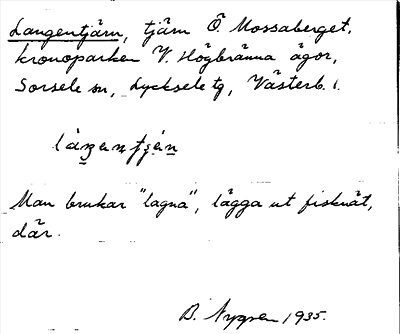 Langentjärn, tjärn Ö. Mossaberget,
kronoparken V. Högbränna ägor,
Sorsele sn, Lycksele tg, Västerb. l.
Man brukar "lagna", lägga ut fisknät,
där.
B. Nygren 1935.